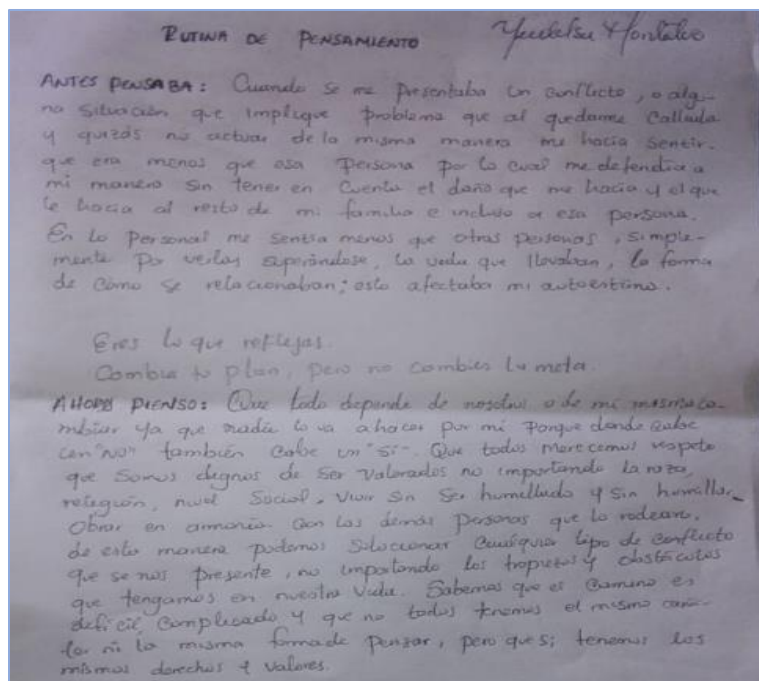 RUTINA DE PENSAMIENTO
ANTES PENSABA: Cuando se me presentaba un conflicto, o algu-
na situación que implique problema que al quedarme callada
y quizás no actuar de la misma manera me hacía sentir.
que era menos que esa persona por lo cual me defendia a
mi manera sin tener en cuenta el daño que me hacia y el que
le hacia al resto de mi familia e incluso a esa persona.
En lo personal me sentia menos que otras personas, simple-
mente por verlas superándose, la vida que llevaban, la forma
de cómo se relacionaban; esto afectaba mi autoestima.
Eres lo que reflejas.
Cambia tu plan, pero no cambies la meta.
AHORA PIENSO: Que todo depende de nosotros o de mi misma ca-
mbiar ya que nadie lo va a hacer por mi porque donde cabe
un "no" también cabe un "si". Que todos merecemos respeto
que somos dignos de ser valorados no importando la raza,
religión, nivel social, vivir sin ser humillado y sin humillar_
Obrar en armonia con las demás personas que lo rodean.
de esta manera podemos solucionar cualquier tipo de conflicto
que se nos presente, no importando los tropiezos y obstáculos
que tengamos en nuestra vida. Sabemos que el camino es
dificil, complicado y que no todos tenemos el mismo
ni la misma forma de pensar, pero que si; tenemos los
mismos derechos y valores.